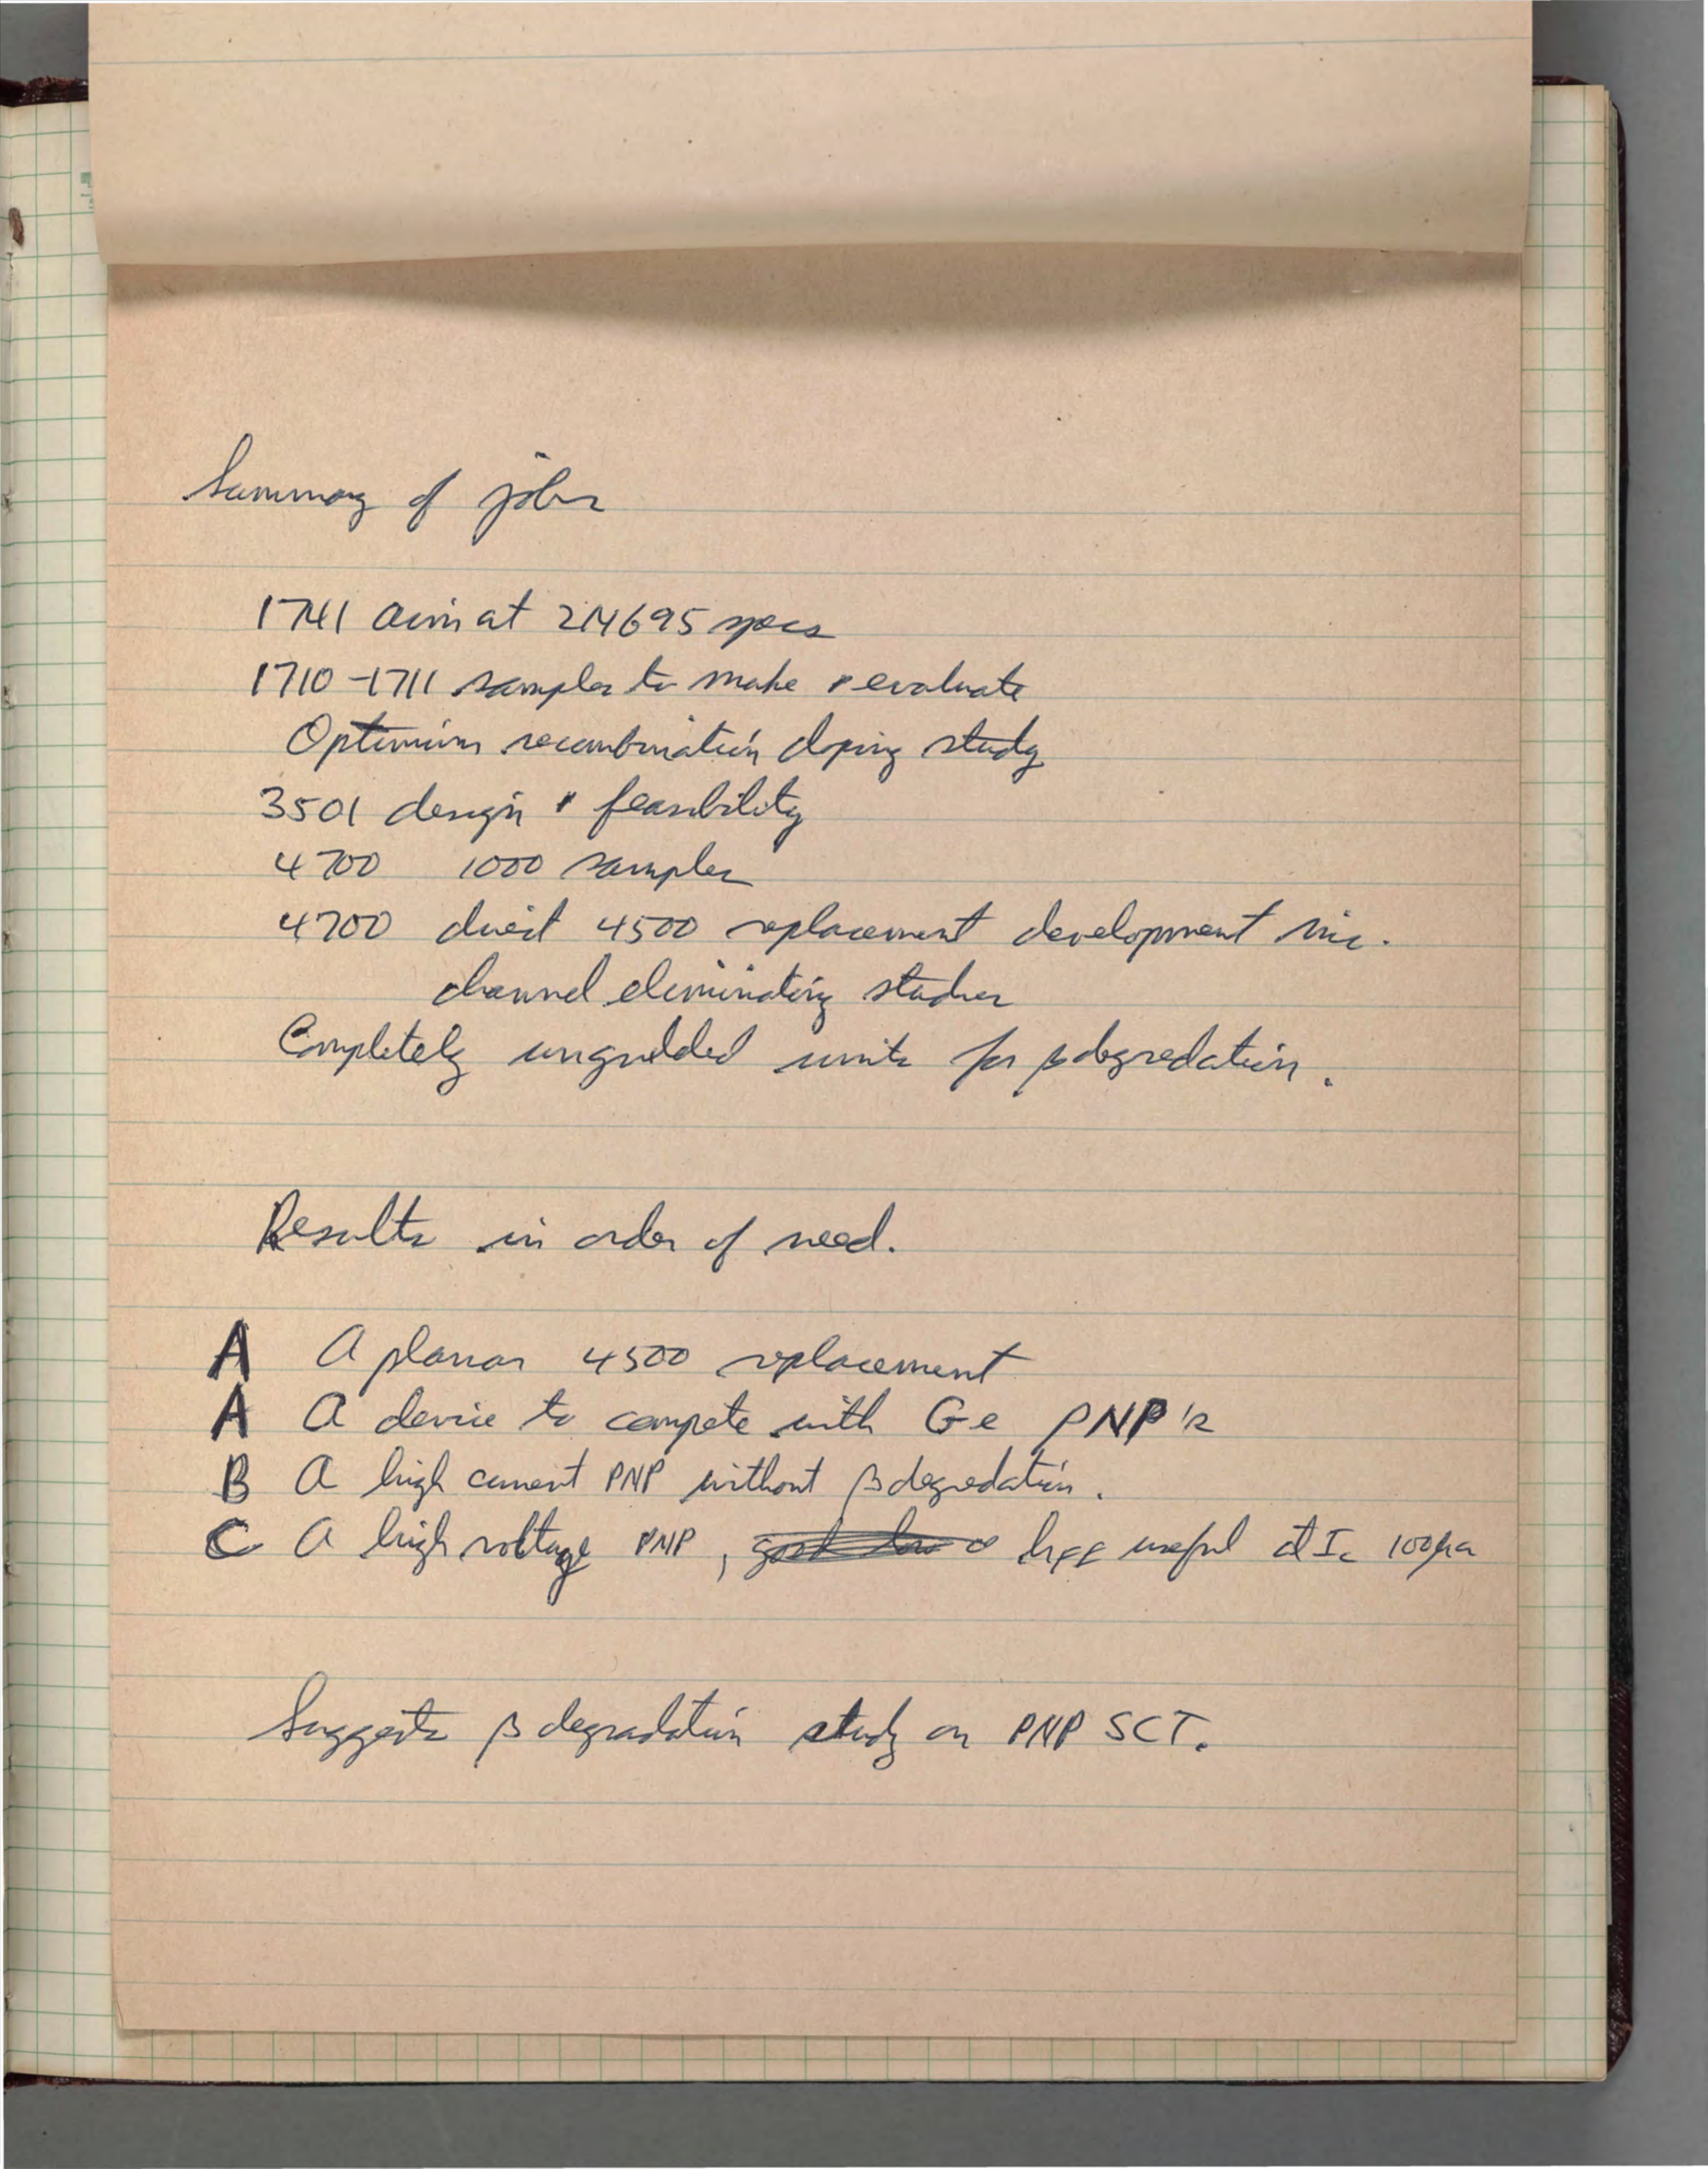 Summary of jobs
1741 aim at 2N695 specs
1710-1711 samples to make & evaluate
Optimum recombination doping study
3501 design & feasibility
4700 1000 samples
4700 direct 4500 replacement development inc.
channel eliminating studies
Completely ungredded units for β degredation.
Results in order of need.
A A planar 4500 replacement
A A device to compete with Ge PNP's
B A high current PNP without β degredation.
C A high voltage PNP, hFE useful at Ic 100μa
Suggests β degradation study on PNP SCT.